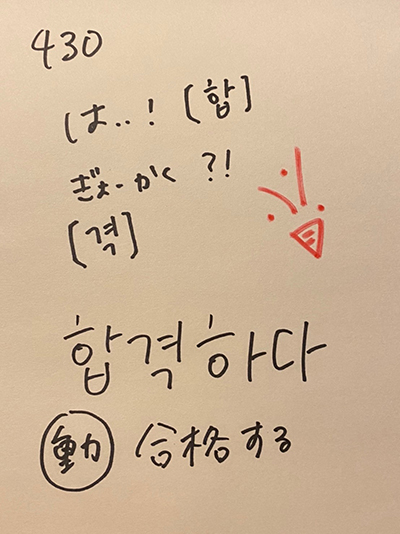 430
は..! [합]
ぎょーかく ?!
[격]
합격하다
動 合格する